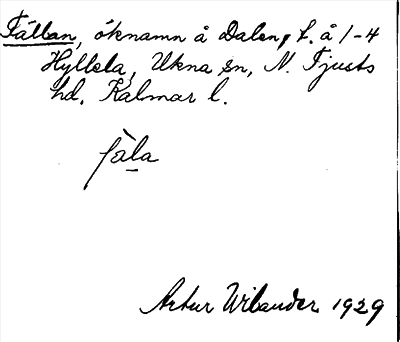 Fällan, öknamn å Dalen, L. å 1-4
Hyllela, Ukna sn, N. Tjusts
hd. Kalmar l.
fàla
Artur Wilander 1929